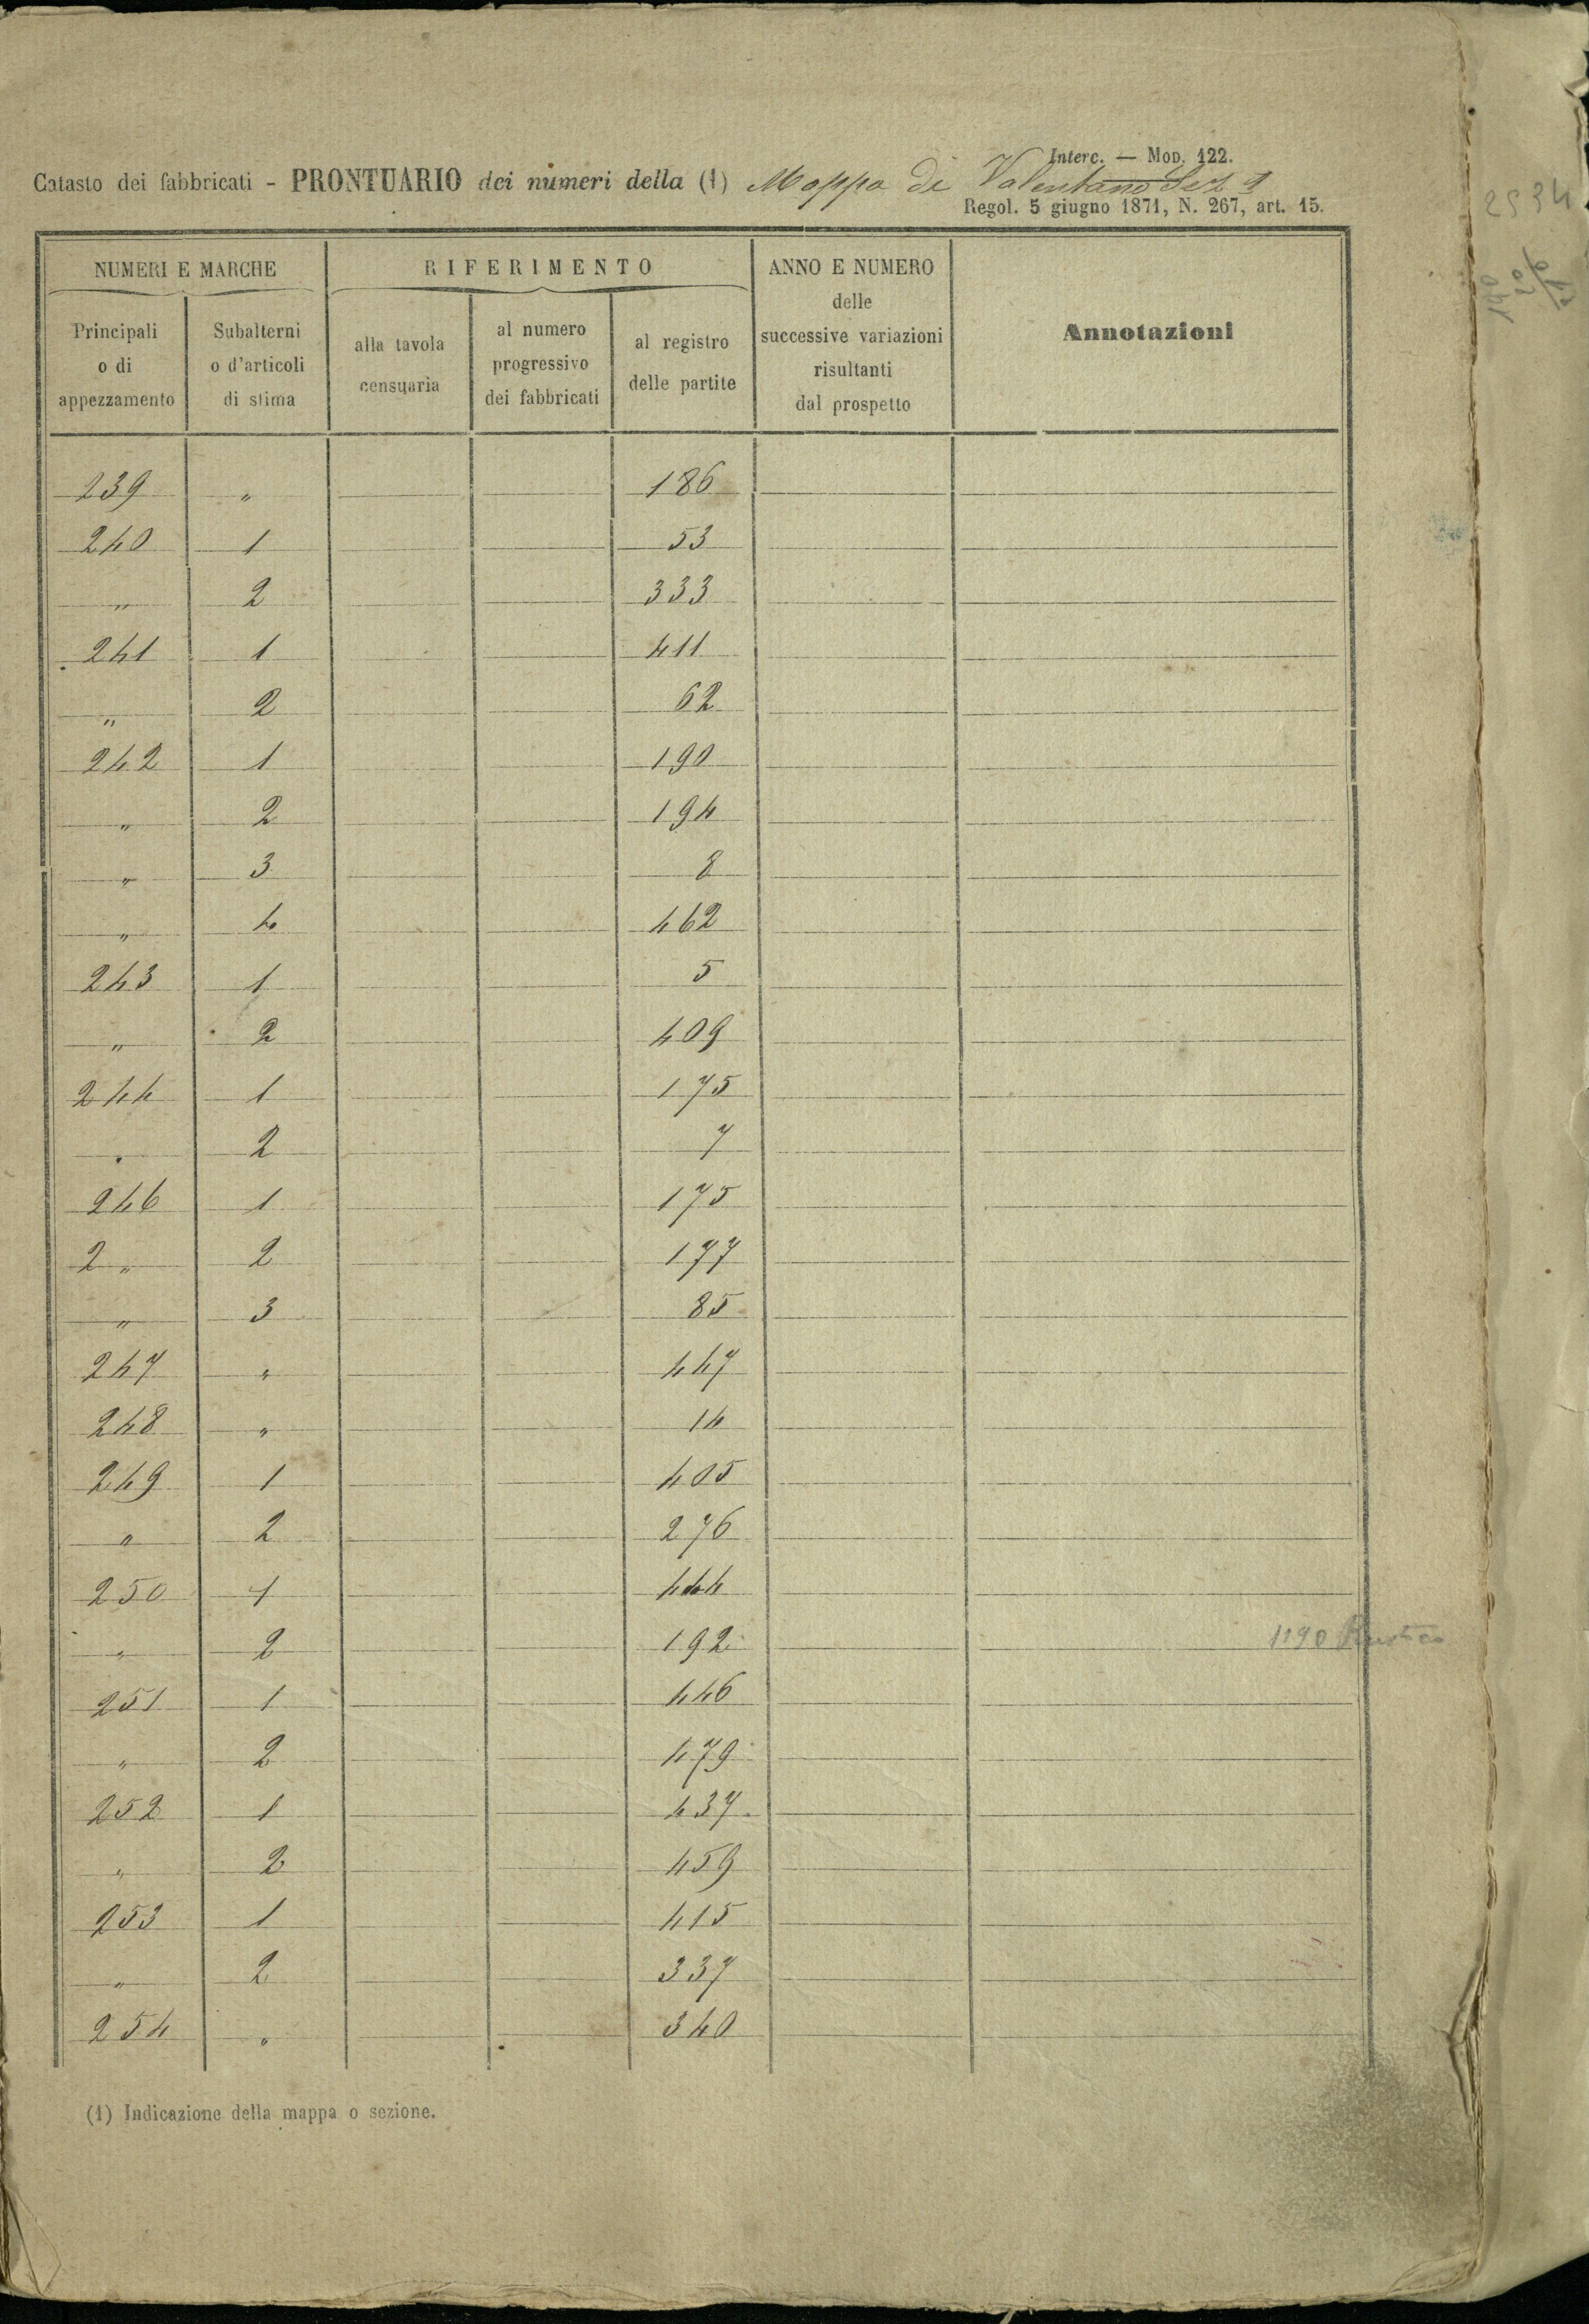 Interc. — Mod. 122.
Catasto dei fabbricati - PRONTUARIO dei numeri della (1) Mappa di Valentano Sez
Regol. 5 giugno 1871, N. 267, art. 15.
NUMERI E MARCHE RIFERIMENTO ANNO E NUMERO delle successive variazioni risultanti dal prospetto Annotazioni
Principali o di appezzamento Subalterni o d'articoli di stima alla tavola censuaria al numero progressivo dei fabbricati al registro delle partite
239 " 186
240 1 53
" 2 333
241 1 411
" 2 62
242 1 190
" 2 194
" 3 8
" 4 462
243 1 5
" 2 409
244 1 175
" 2 7
246 1 175
2 " 2 177
" 3 85
247 " 447
248 " 14
249 1 405
" 2 276
250 1 444
" 2 192 1190 Rustico
251 1 446
" 2 479
252 1 437
" 2 459
253 1 415
" 2 337
254 " 340
(1) Indicazione della mappa o sezione.
2534